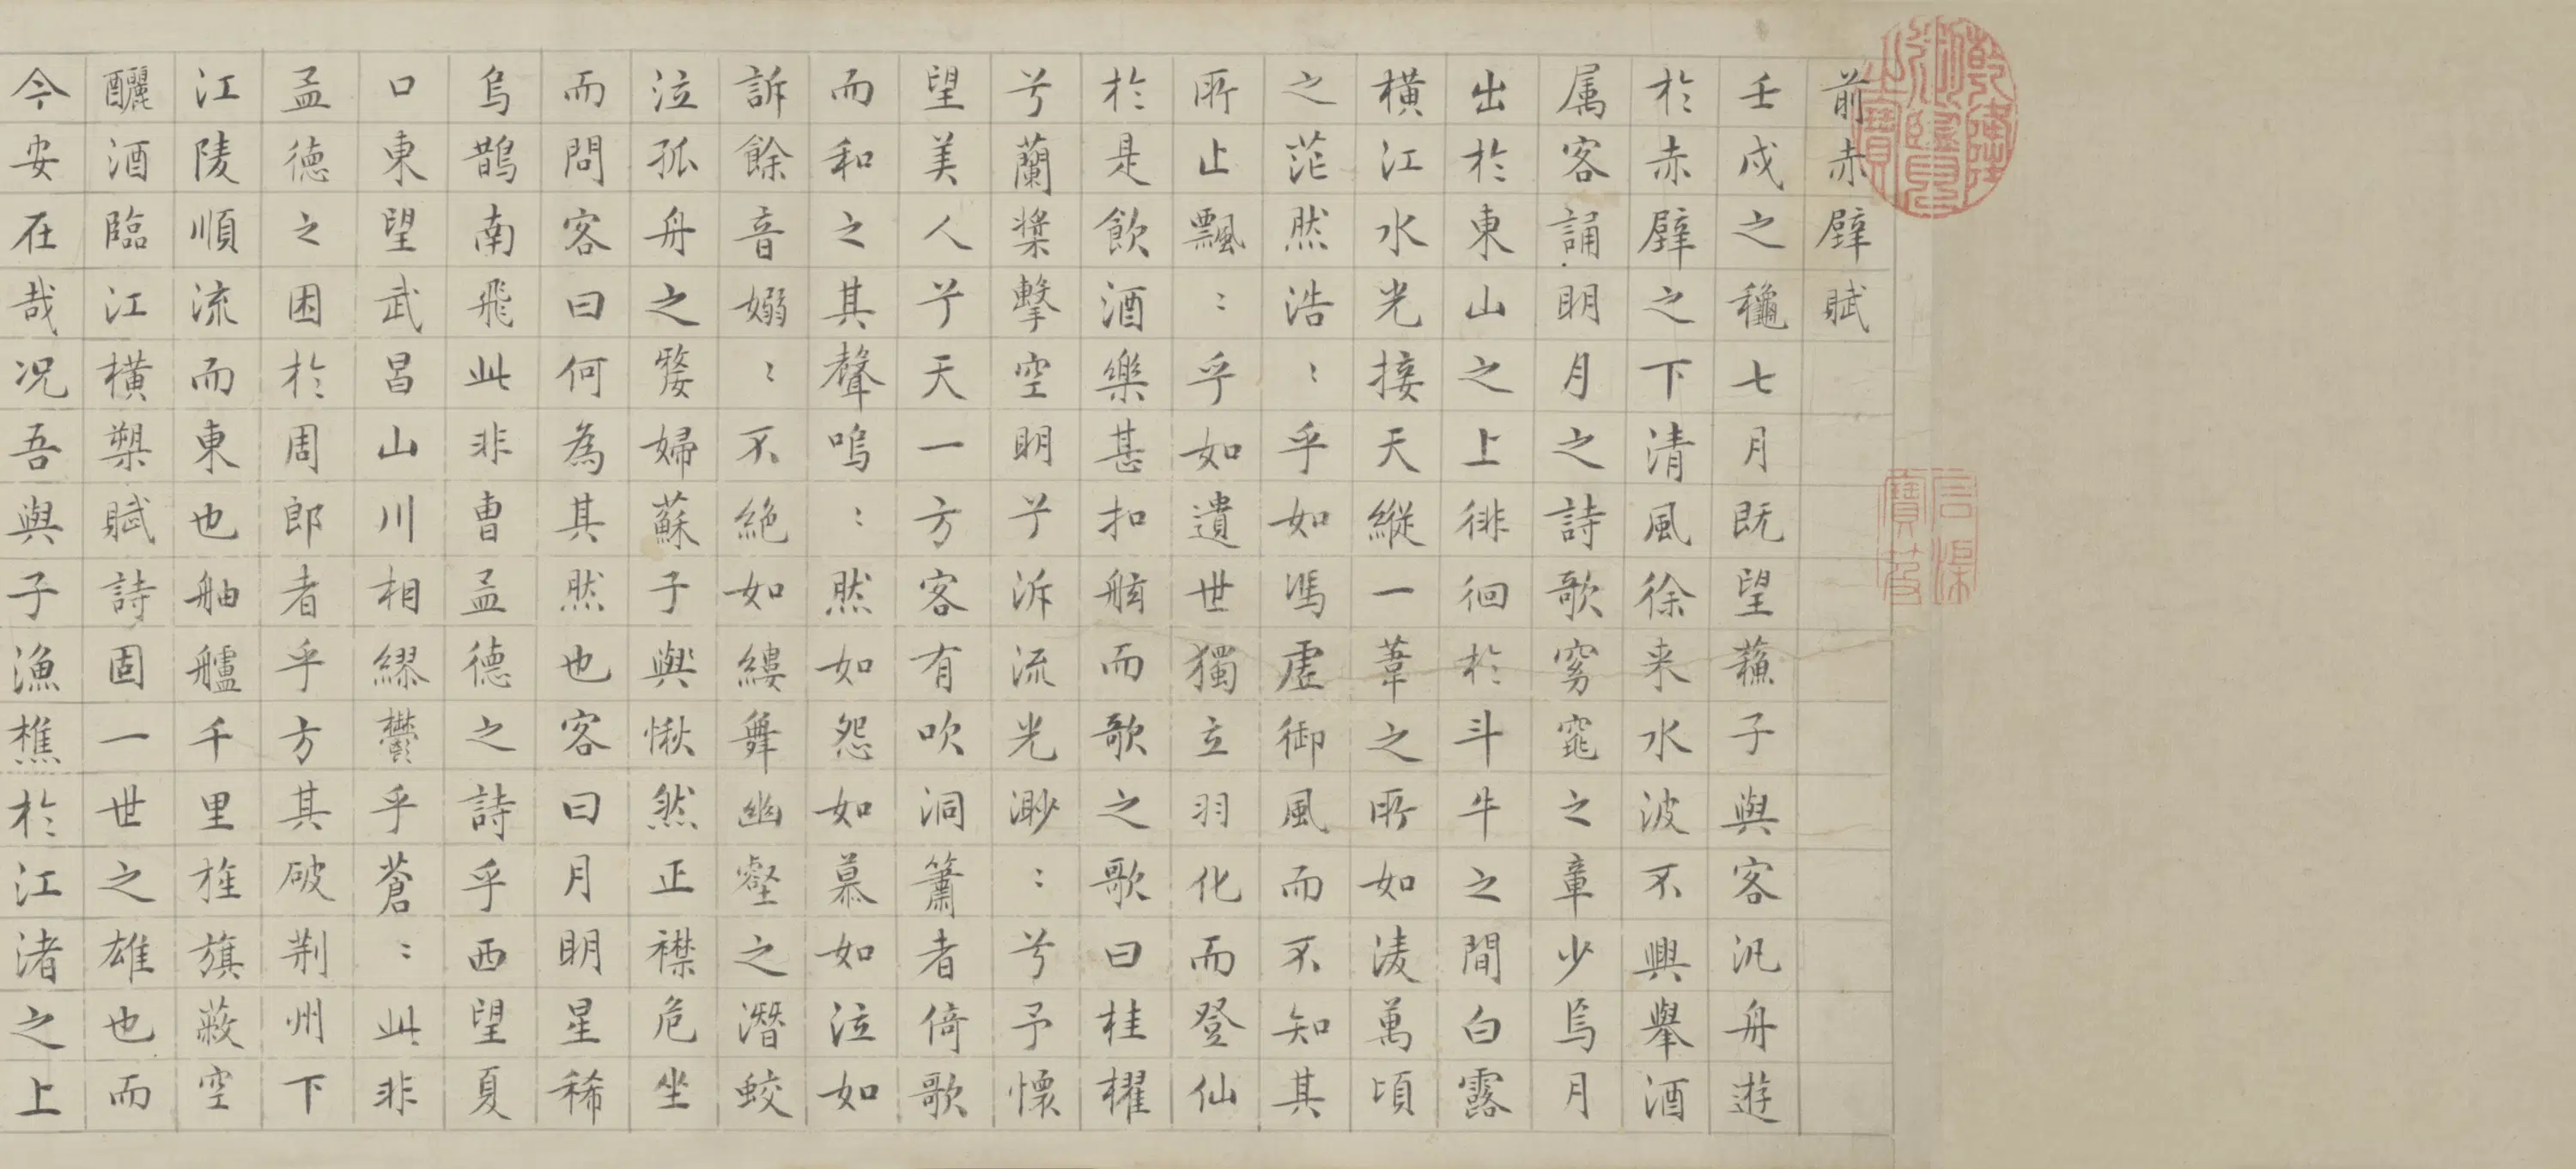 乾隆御覽之寶
石渠寶笈
前赤壁賦
壬戌之龝七月既望蘓子與客汎舟遊
於赤壁之下清風徐来水波不興舉酒
属客誦明月之詩歌窈窕之章少焉月
出於東山之上徘徊於斗牛之間白露
横江水光接天縱一葦之所如凌萬頃
之茫然浩〻乎如馮虚御風而不知其
所止飄〻乎如遺世獨立羽化而登仙
於是飲酒樂甚扣舷而歌之歌曰桂櫂
兮蘭槳擊空明兮泝流光渺〻兮予懷
望美人兮天一方客有吹洞簫者倚歌
而和之其聲嗚〻然如怨如慕如泣如
訴餘音嫋〻不絶如縷舞幽壑之潛蛟
泣孤舟之嫠婦蘇子與愀然正襟危坐
而問客曰何為其然也客曰月明星稀
烏鵲南飛此非曹孟德之詩乎西望夏
口東望武昌山川相繆欝乎蒼〻此非
孟德之困於周郎者乎方其破荆州下
江陵順流而東也舳艫千里旌旗蔽空
釃酒臨江横槊賦詩固一世之雄也而
今安在哉况吾與子漁樵於江渚之上